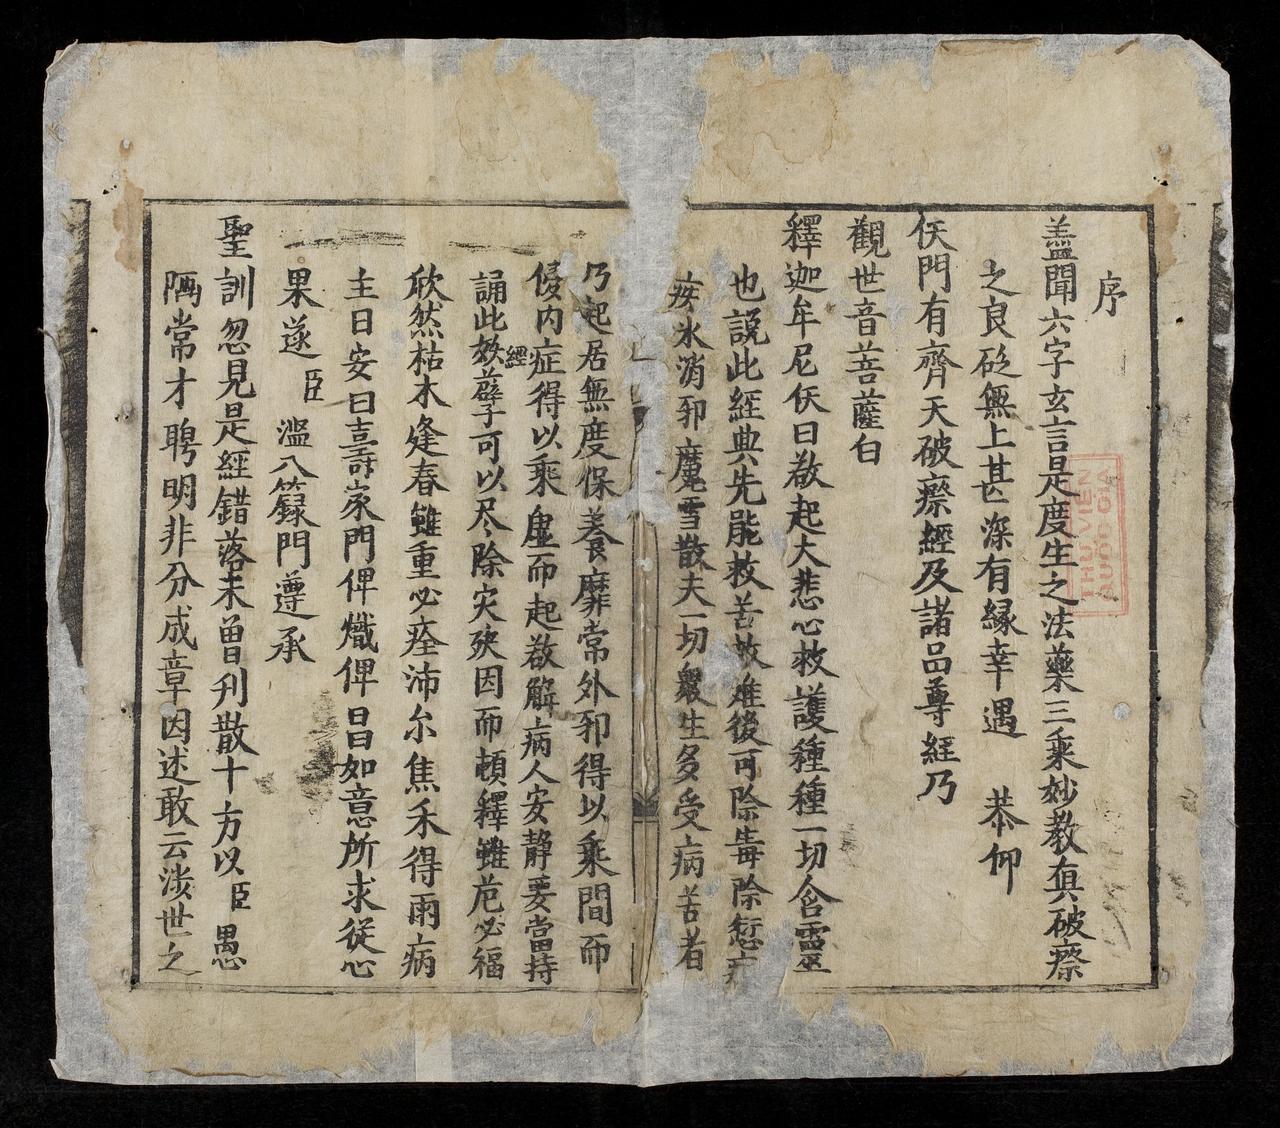 序
盖聞六字玄言是度生之法藥三乘妙教真破瘵
之良砭無上甚深有緣幸遇 恭仰
仸門有齊天破瘵經及諸品尊經乃
觀世音菩薩白
釋迦牟尼仸曰欲起大悲心救護種種一切含靈
也説此經典先能救苦救难後可除毒除愆
氷消邪魔雪散夫一切衆生多受病苦者
乃起居無度保養靡常外邪得以乘間而
侵内症得以乘虚而起欲觧病人安静要當持
誦此經欬孽子可以尽除灾殃因而頓釋雖危必福
欣然枯木逢春雖重必痊沛尔焦禾得雨病
主日安曰壽家門俾熾俾昌如意所求從心
果遂臣濫八籙門遵承
聖訓忽見是經錯落未曽刋散十方以臣愚
陋常才聘明非分成章因述敢云渉世之
THU VIEN
QUOC GIA